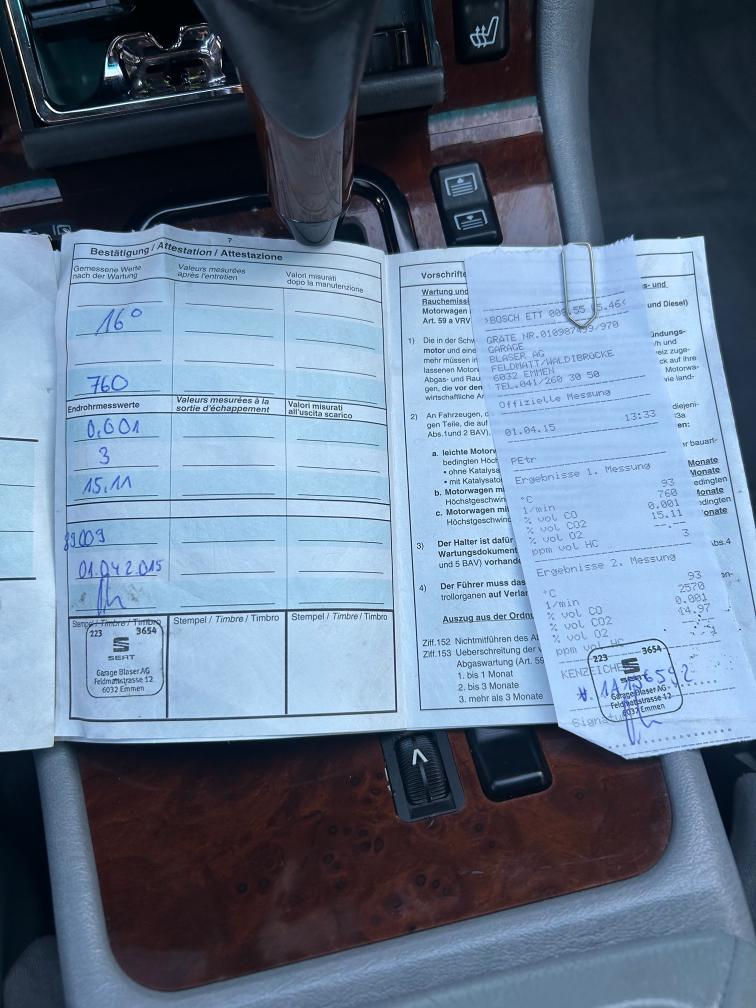 7
Bestätigung / Attestation / Attestazione
Gemessene Werte nach der Wartung
Valeurs mesurées après l'entretien
Valori misurati dopo la manutenzione
16°
760
Endrohrmesswerte
Valeurs mesurées à la sortie d'échappement
Valori misurati all'uscita scarico
0,001
3
15,11
89009
01.04.2015
Stempel / Timbre / Timbro
Stempel / Timbre / Timbro
Stempel / Timbre / Timbro
223 3654
SEAT
Garage Blaser AG
Feldmattstrasse 12
6032 Emmen
Vorschrifte
Wartung und
Rauchemiss
Motorwagen
und Diesel)
Art. 59 a VRV
1) Die in der Schw
motor und eine
mehr müssen in
lassenen Motor
Abgas- und Rau
gen, die vor den
wirtschaftliche Ar
2) An Fahrzeugen, d
gen Teile, die auf
Abs.1und 2 BAV),
a. leichte Motorw
bedingten Höch
• ohne Katalysa
• mit Katalysator
b. Motorwagen m
Höchstgeschwin
c. Motorwagen mi
Höchstgeschwin
Monate
Monate
3) Der Halter ist dafür
Wartungsdokument
und 5 BAV) vorhande
Abs.4
4) Der Führer muss das
trollorganen auf Verlan
Auszug aus der Ordnu
Ziff.152 Nichtmitführen des A
Ziff.153 Ueberschreitung der
Abgaswartung (Art. 59
1. bis 1 Monat
2. bis 3 Monate
3. mehr als 3 Monate
>BOSCH ETT 008.55
GARAGE
BLASER AG
FELDMATT/WALDIBRÜCKE
6032 EMMEN
TEL.041/260 30 50
Offizielle Messung
01.04.15 13:33
PEtr
Ergebnisse 1. Messung
°C 93
1/min 760
% vol CO 0.001
% vol CO2 15.11
% vol O2 --.--
ppm vol HC 3
Ergebnisse 2. Messung
°C 93
1/min 2570
% vol CO 0.001
% vol CO2 14.97
% vol O2
ppm vol HC
KENZEICHE
223 3654
SEAT
Garage Blaser AG
Feldmattstrasse 12
6032 Emmen
Signatu